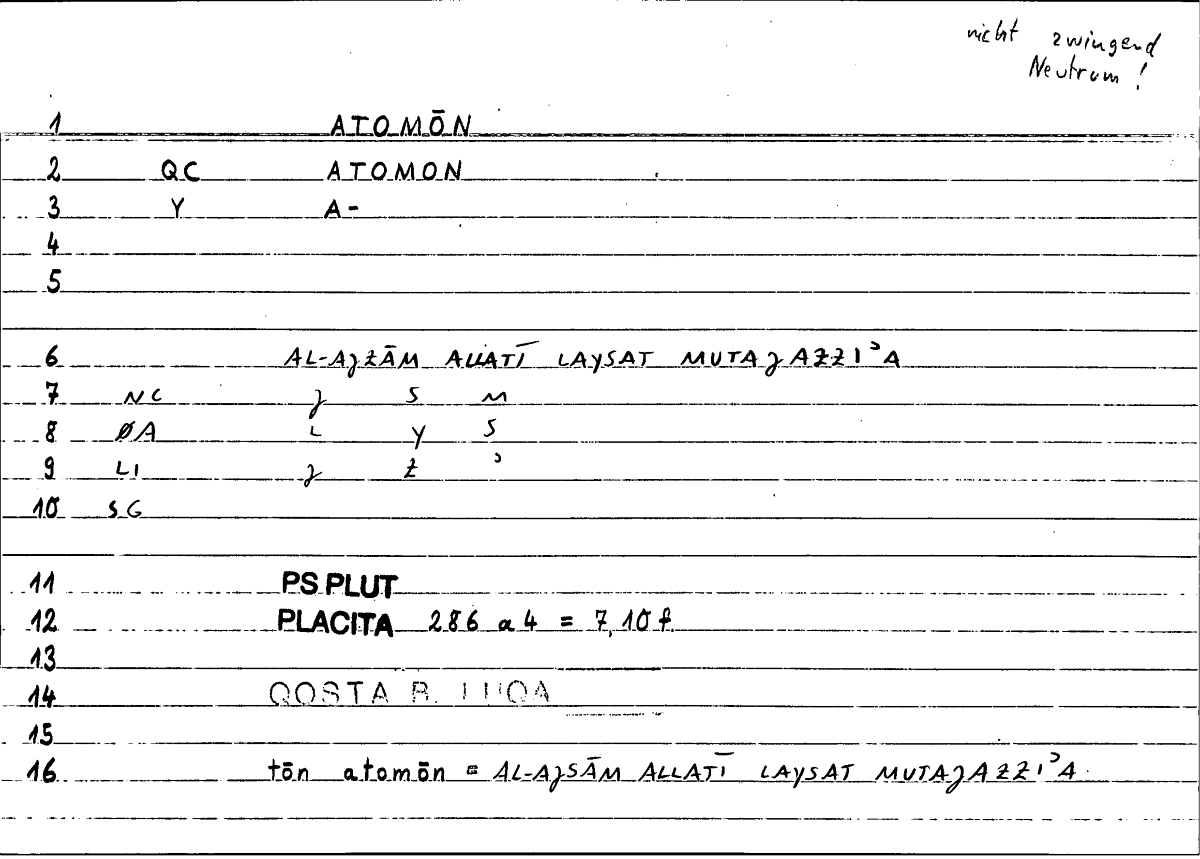 nicht zwingend
Neutrum!
1 ATOMŌN
2 QC ATOMON
3 Y A-
4
5
6 AL-AJZĀM ALLATĪ LAYSAT MUTAJAZZIʾA
7 NC J S M
8 ØA L Y S
9 LI J Z ʾ
10 SG
11 PS PLUT
12 PLACITA 286 a 4 = 7,10 f
13
14 QOSTA B. LUQA
15
16 tōn atomōn = AL-AJSĀM ALLATĪ LAYSAT MUTAJAZZIʾA